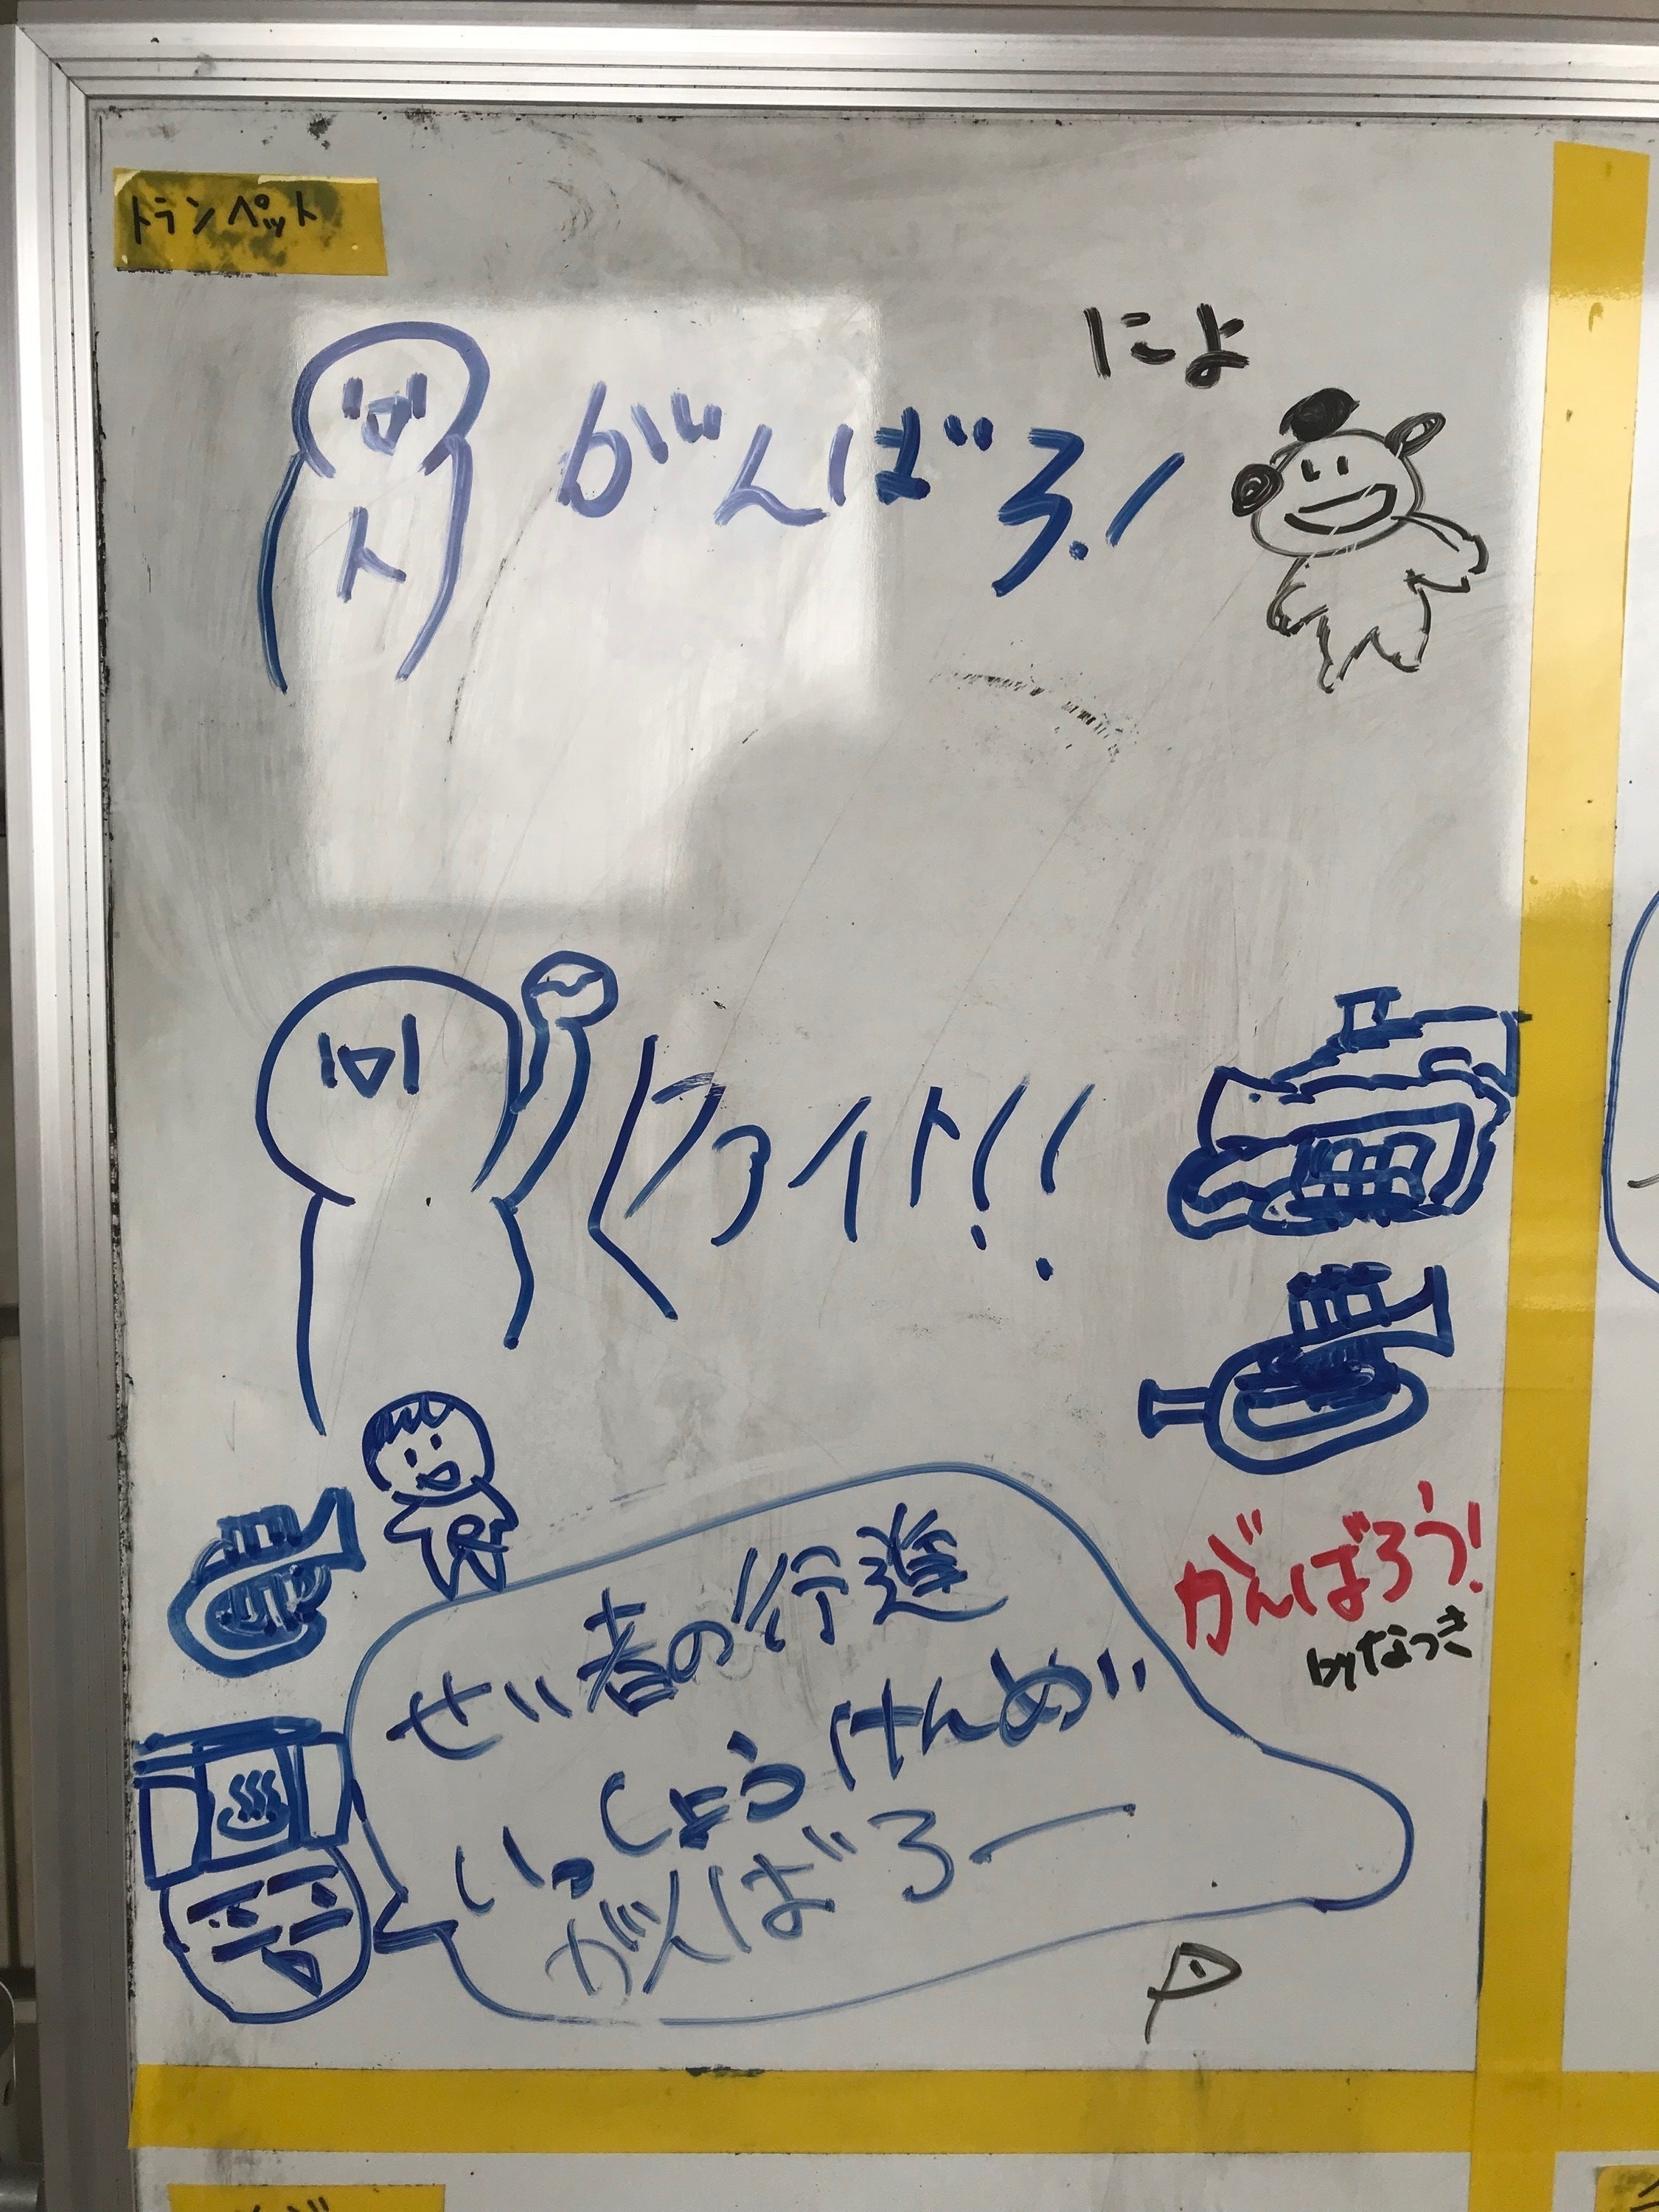 トランペット
にょ
がんばろ!
ト
ファイト!!
がんばろう!
byなつき
せい者の行進
いっしょうけんめい
がんばろー